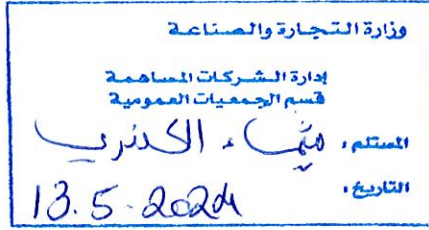 وزارة التجارة والصناعة
إدارة الشركات المساهمة
قسم الجمعيات العمومية
المستلم، شيماء الكندري
التاريخ، 13.5.2024